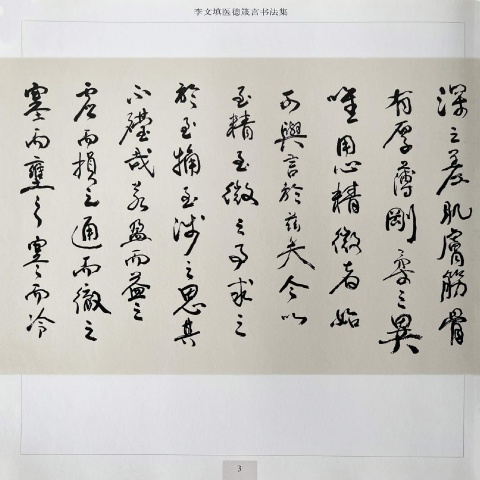 李文填医德箴言书法集
深之差肌膚筋骨
有厚薄剛柔之異
唯用心精微者始
可與言於茲矣今以
至精至微之事求之
於至至淺之思其
不哉若盈而益之
虛而損之通而徹之
塞而壅之寒而冷
3